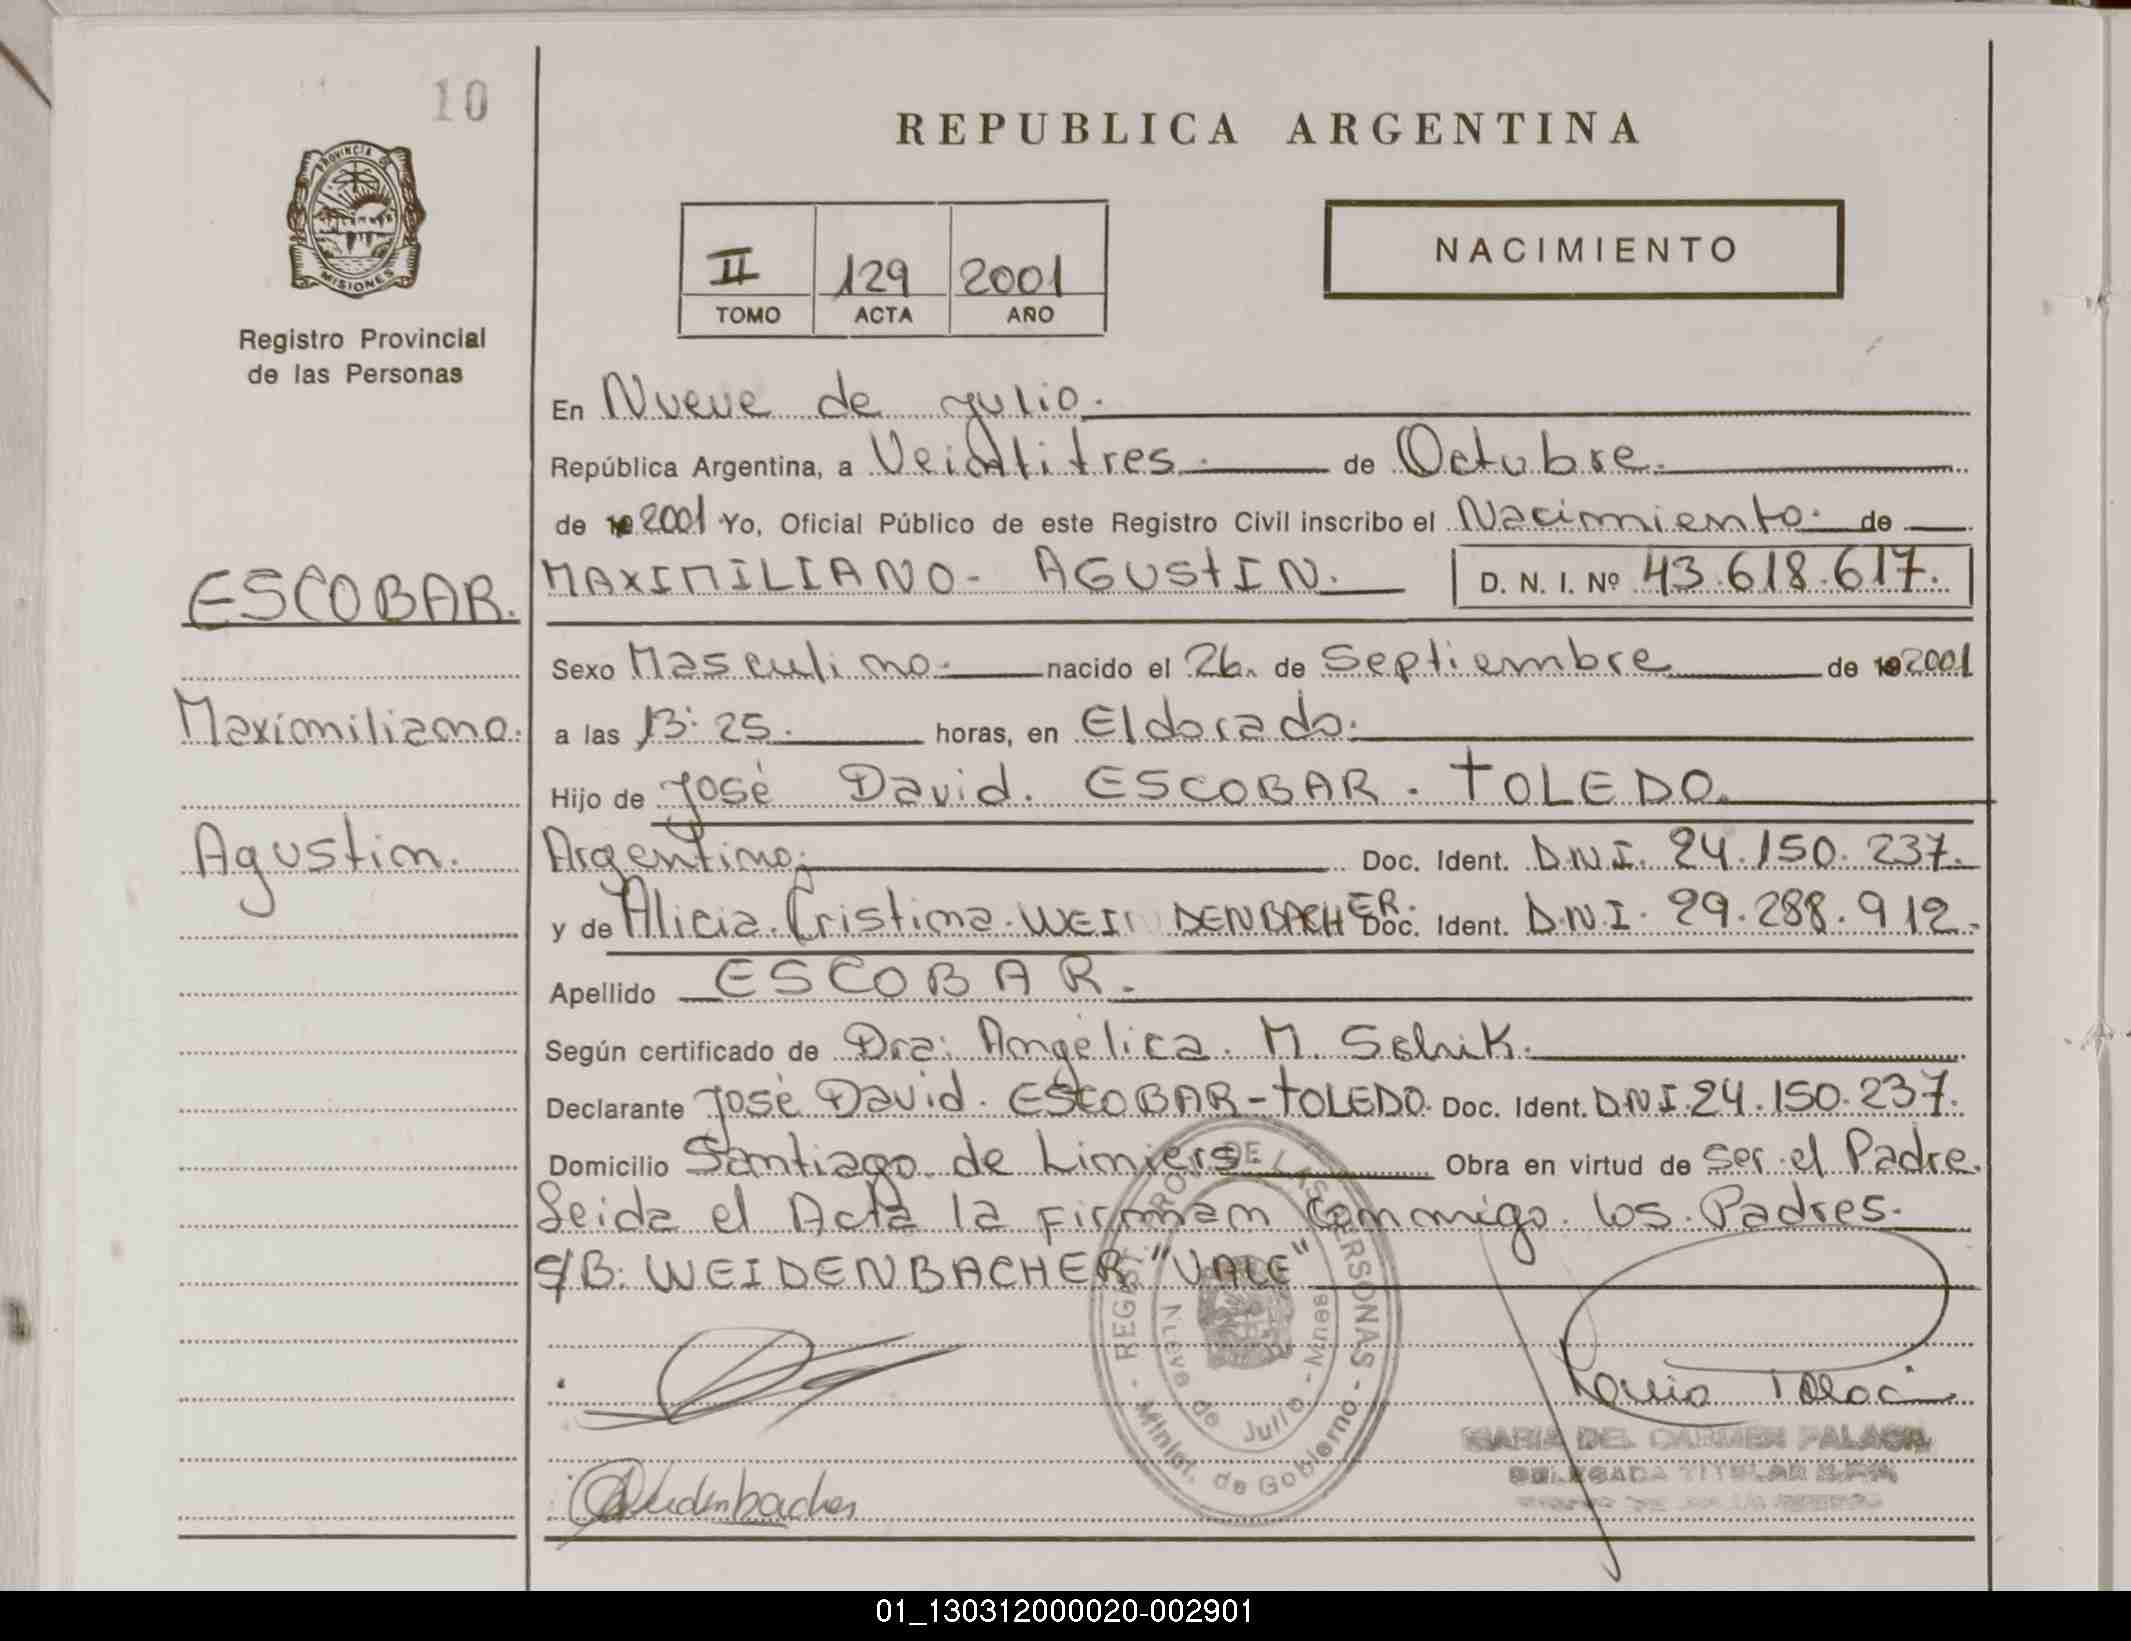 10
PROVINCIA DE
MISIONES
Registro Provincial
de las Personas
ESCOBAR.
Maximiliano.
Agustin.
REPUBLICA ARGENTINA
II 129 2001
TOMO ACTA AÑO
NACIMIENTO
En Nueve de Julio.
República Argentina, a Veintitres. de Octubre.
de 19 2001 Yo, Oficial Público de este Registro Civil inscribo el Nacimiento. de
MAXIMILIANO- AGUSTIN. D. N. I. Nº 43.618.617.
Sexo Masculino. nacido el 26. de Septiembre de 19 2001
a las 13:25. horas, en Eldorado.
Hijo de José David. ESCOBAR - TOLEDO.
Argentino. Doc. Ident. D.N.I. 24.150.237.
y de Alicia. Cristina. WEI DENBACHER. Doc. Ident. D.N.I. 29.288.912.
Apellido ESCOBAR.
Según certificado de Dra: Angélica. M.
Declarante José David. ESCOBAR-TOLEDO. Doc. Ident. D.N.I. 24.150.237.
Domicilio Santiago de Liniers Obra en virtud de Ser el Padre.
Leida el Acta la firman conmigo. los. Padres.
S/B: WEIDENBACHER "VALE"
REGIST. PROV. DE LAS PERSONAS - Minist. de Gobierno -
Nueve de Julio - Mnes
Weidenbacher
MARIA DEL CARMEN PALACIN
DELEGADA TITULAR
01_130312000020-002901